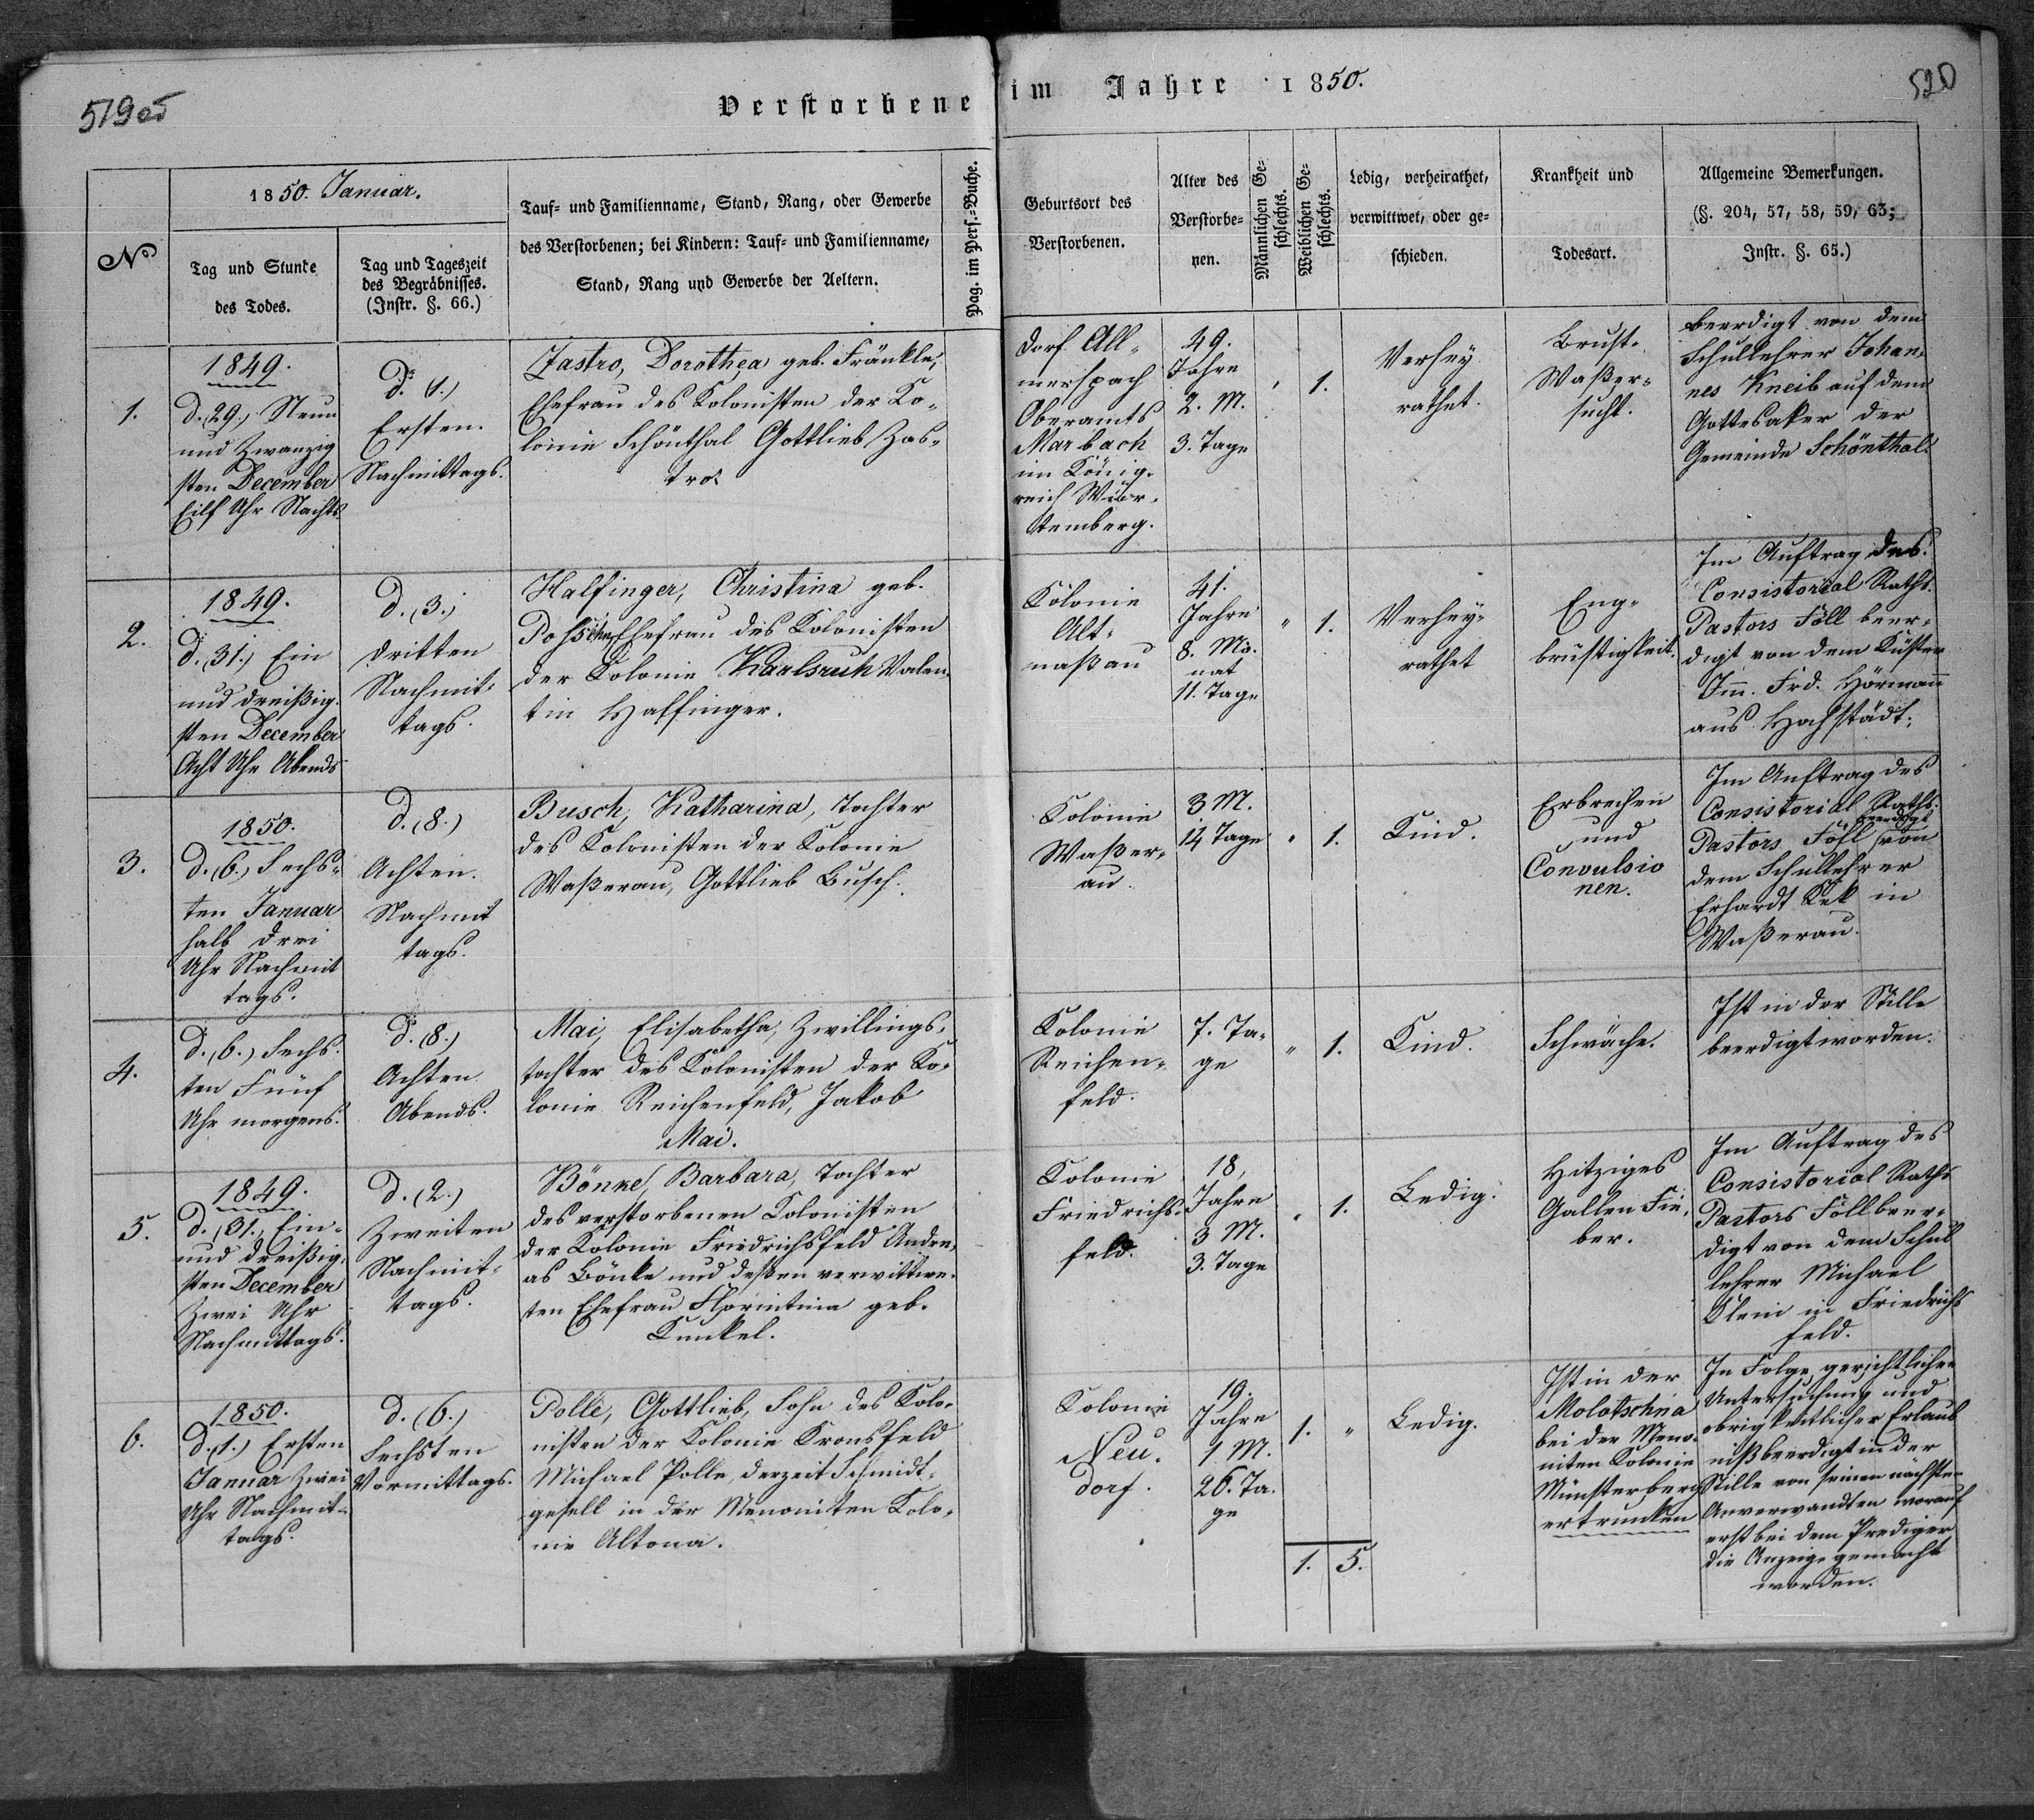 519 об
520
Verstorbene im Jahre 1850.
№
1850. Januar.
Tag und Stunde
des Todes.
Tag und Tageszeit
des Begräbnisses.
(Instr. §. 66.)
Tauf- und Familienname, Stand, Rang, oder Gewerbe
des Verstorbenen; bei Kindern: Tauf- und Familienname,
Stand, Rang und Gewerbe der Aeltern.
Pag. im Pers.-Buche.
Geburtsort des
Verstorbenen.
Alter des
Verstorbe-
nen.
Männlichen Ge-
schlechts.
Weiblichen Ge-
schlechts.
Ledig, verheirathet,
verwittwet, oder ge-
schieden.
Krankheit und
Todesart.
Allgemeine Bemerkungen.
(§. 204, 57, 58, 59, 63;
Instr. §. 65.)
1.
1849.
d. (29.) Neun
und Zwanzig
sten December
Eilf Uhr Nachts
d. (1.)
Ersten.
Nachmittags.
Zastro, Dorothea geb. Fränkle,
Ehefrau des Kolonisten der Ko-
lonie Schönthal Gottlieb Zas-
tro.
Dorf All-
merspach
Oberamts
Marbach
im König-
reich Wür-
temberg.
49.
Jahre
2. M.
3. Tage
"
1.
Verhey
rathet.
Brust-
Waßer-
sucht.
beerdigt von dem
Schullehrer Johan-
nes Kneib auf dem
Gottesaker der
Gemeinde Schönthal.
2.
1849.
d. (31.) Ein
und dreißig-
sten December
Acht Uhr Abends
d. (3.)
dritten
Nachmit-
tags.
Halfinger, Christina geb.
Ehefrau des Kolonisten
der Kolonie Karlsruh Valen-
tin Halfinger.
Kolonie
Alt-
naßau
41.
Jahre
8. Mo-
nat
11. Tage
"
1.
Verhey-
rathet
Eng-
brüstigkeit.
Im Auftrag des
Consistorial Raths
Pastors Föll beer-
digt von dem Küster
Im. Frd. Hörmann
aus Hochstädt.
3.
1850.
d. (6.) Sechs-
ten Januar
halb drei
Uhr Nachmit
tags.
d. (8.)
Achten.
Nachmit
tags.
Busch, Katharina, Tochter
des Kolonisten der Kolonie
Waßerau, Gottlieb Busch.
Kolonie
Waßer-
au.
3 M.
14 Tage
"
1.
Kind.
Erbrechen
und
Convulsio
nen.
Im Auftrag des
Consistorial Raths
beerdigt
Pastors Föll von
dem Schullehrer
Erhardt Kek in
Waßerau.
4.
d. (6.) Sechs-
ten Fünf
Uhr morgens.
d. (8.)
Achten
Abends.
Mai, Elisabetha, Zwillings-
tochter des Kolonisten der Ko-
lonie Reichenfeld, Jakob
Mai.
Kolonie
Reichen-
feld.
7. Ta-
ge
"
1.
Kind.
Schwäche.
Ist in der Stille
beerdigt worden.
5.
1849.
d. (31.) Ein-
und dreißig-
sten December
Zwei Uhr
Nachmittags.
d. (2.)
Zweiten
Nachmit-
tags.
Bönke, Barbara, Tochter
des verstorbenen Kolonisten
der Kolonie Friedrichsfeld Andre-
as Bönke und deßen verwittwe-
ten Ehefrau Florintina geb.
Kunkel.
Kolonie
Friedrichs-
feld.
18.
Jahre
3 M.
3. Tage
"
1.
Ledig.
Hitziges
Gallen Fie-
ber.
Im Auftrag des
Consistorial Raths
Pastors Föll beer-
digt von dem Schul
lehrer Michael
Klein in Friedrichs
feld.
6.
1850.
d. (1.) Ersten
Januar Zwei
Uhr Nachmit-
tags.
d. (6.)
Sechsten
Vormittags.
Polle, Gottlieb, Sohn des Kolo-
nisten der Kolonie Kronsfeld
Michael Polle, derzeit Schmidt-
gesell in der Menoniten Kolo-
nie Altona.
Kolonie
Neu-
dorf.
19.
Jahre
1 M.
26. Ta-
ge
1.
"
Ledig.
Ist in der
Molotschna
bei der Meno-
niten Kolonie
Münsterberg
ertrunken
In Folge gerichtlicher
Untersuchung und
obrigkeitlicher Erlaub
niß beerdigt in der
Stille von seinen nächsten
Anverwandten worauf
erst bei dem Prediger
die Anzeige gemacht
worden.
1. 5.